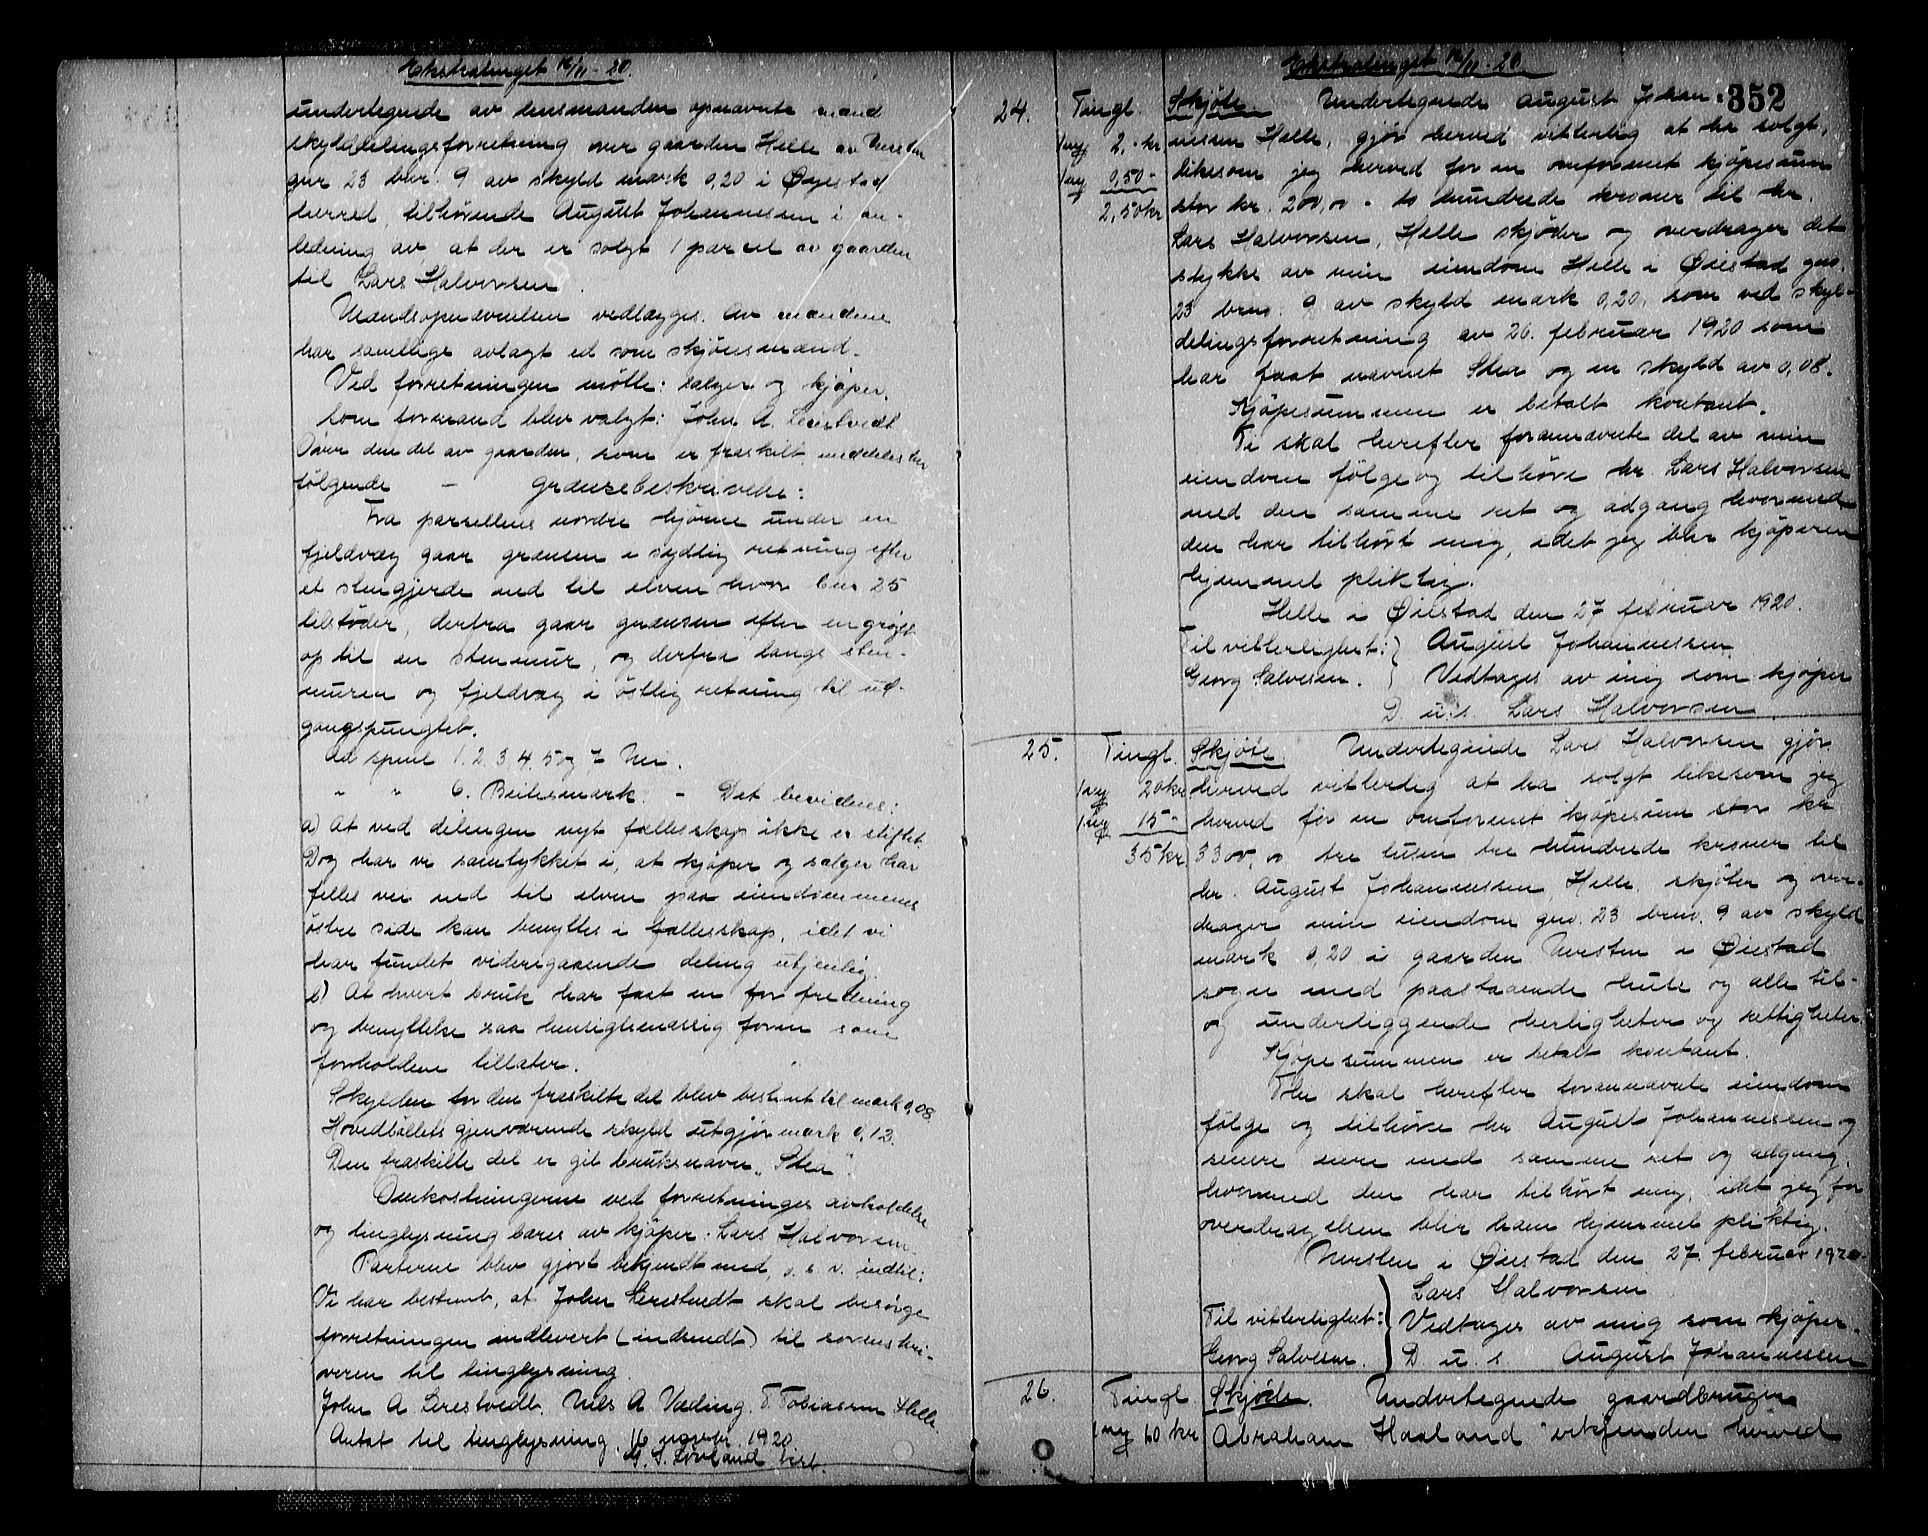 Ekstratinget 16/11-20.
undertegnede av lensmanden opnævnte mænd
skylddelingsforretning over gaarden Helle av Nersten
gnr 23 bnr. 9 av skyld mark 0,20 i Øyestad
herred, tilhørende August Johannessen i an-
ledning av, at der er solgt 1 parsel av gaarden
til Lars Halvorsen
Mændsopnævnelsen vedlægges. Av mændene
har samtlige avlagt ed som skjønsmænd.
Ved forretningen møtte: sælger og kjøper.
Som formand blev valgt: John A. Lerestvedt
Over den del av gaarden, som er fraskilt, meddeles her
følgende - grænsebeskrivelse:
Fra parsellens nordre hjørne under en
fjeldvæg gaar grænsen i sydlig retning efter
et stengjerde ned til elven hvor bnr 25
tilstøder, derfra gaar grænsen efter en grøft
op til en stenmur, og derfra langs sten-
muren og fjeldvæg i østlig retning til ud-
gangspungtet.
Ad spml 1. 2. 3. 4. 5 og 7 Nei.
" " 6. Beitesmark. - Det bevidnes:
a) At ved delingen nyt fællesskap ikke er stiftet.
Dog har vi samtykket i, at kjøper og sælger har
felles vei ned til elven paa eiendommenes
østre side kan benyttes i fællesskap, idet vi
har fundet videregaaende deling utjenlig.
b) At hvert bruk har faat en for fredning
og benyttelse saa hensigtsmæssig form som
forholdene tillater.
Skylden for den fraskilte del blev bestemt til mark 0,08
Hovedbøllets gjenværende skyld utgjør mark 0,12.
Den fraskilte del er git bruksnavn "Stea".
Omkostningerne ved forretninges avholdelse
og tinglysning bæres av kjøper: Lars Halvorsen
Parterne blev gjort bekjendt med, o. s. v. indtil:
Vi har bestemt, at John Lerestvedt skal besørge
forretningen indlevert (indsendt) til sorenskri-
veren til tinglysning.
John A Lerestvedt. Nils A Væding. T. Tobiassen Helle
Antat til tinglysning. 16 novbr. 1920
G. S. Løvland
Ekstratinget 16/11-20
352
24. Tingl. Skjøte. Undertegnede August Johan-
1ny 2,- kr. nessen Helle, gjør herved vitterlig at ha solgt,
1ny 0,50 - likesom jeg herved for en omforenet kjøpesum
2,50 kr stor kr. 200,00 - to hundrede kroner til hr.
Lars Halvorsen, Helle skjøder og overdrager det
stykke av min eiendom Helle i Øiestad gnr.
23 brnr. 9 av skyld mark 0,20, som ved skyl-
delingsforretning av 26. februar 1920 som
har faat navnet Stea og en skyld av 0,08.
Kjøpesummen er betalt kontant.
Ti skal herefter forannævnte del av min
eiendom følge og tilhøre hr. Lars Halvorsen
med den samme ret og adgang hvormed
den har tilhørt mig, idet jeg blir kjøperen
hjemmel pliktig.
Helle i Øiestad den 27 februar 1920.
Til vitterlighet: } August Johannessen
Georg Salvesen. } Vedtages av mig som kjøper
D. u. s. Lars Halvorsen
25. Tingl. Skjøte Undertegnede Lars Halvorsen gjør
1ny 20 kr. herved vitterlig at ha solgt likesom jeg
1ny 15 - herved for en omforenet kjøpesum stor kr
35 kr. 3300,00 tre tusen tre hundrede kroner til
hr. August Johannessen, Helle, skjøter og over-
drager min eiendom gnr. 23 brnr. 9 av skyld
mark 0,20 i gaarden Nersten i Øiestad
sogn med paastaaende huse og alle til-
og underliggende herligheter og rettigheter.
Kjøpesummen er betalt kontant.
Thi skal herefter forannævnte eiendom
følge og tilhøre hr August Johannessen og
senere eiere med samme ret og adgang,
hvormed den har tilhørt mig, idet jeg for
overdragelsen blir ham hjemmel pliktig.
Nersten i Øiestad den 27. februar 1920.
Lars Halvorsen
Til vitterlighet: } Vedtages av mig som kjøper.
Georg Salvesen. } D u s August Johannessen
26. Tingl Skjøte. Undertegnede gaardbruger
1ny 60 kr Abraham Haaland erkjender herved